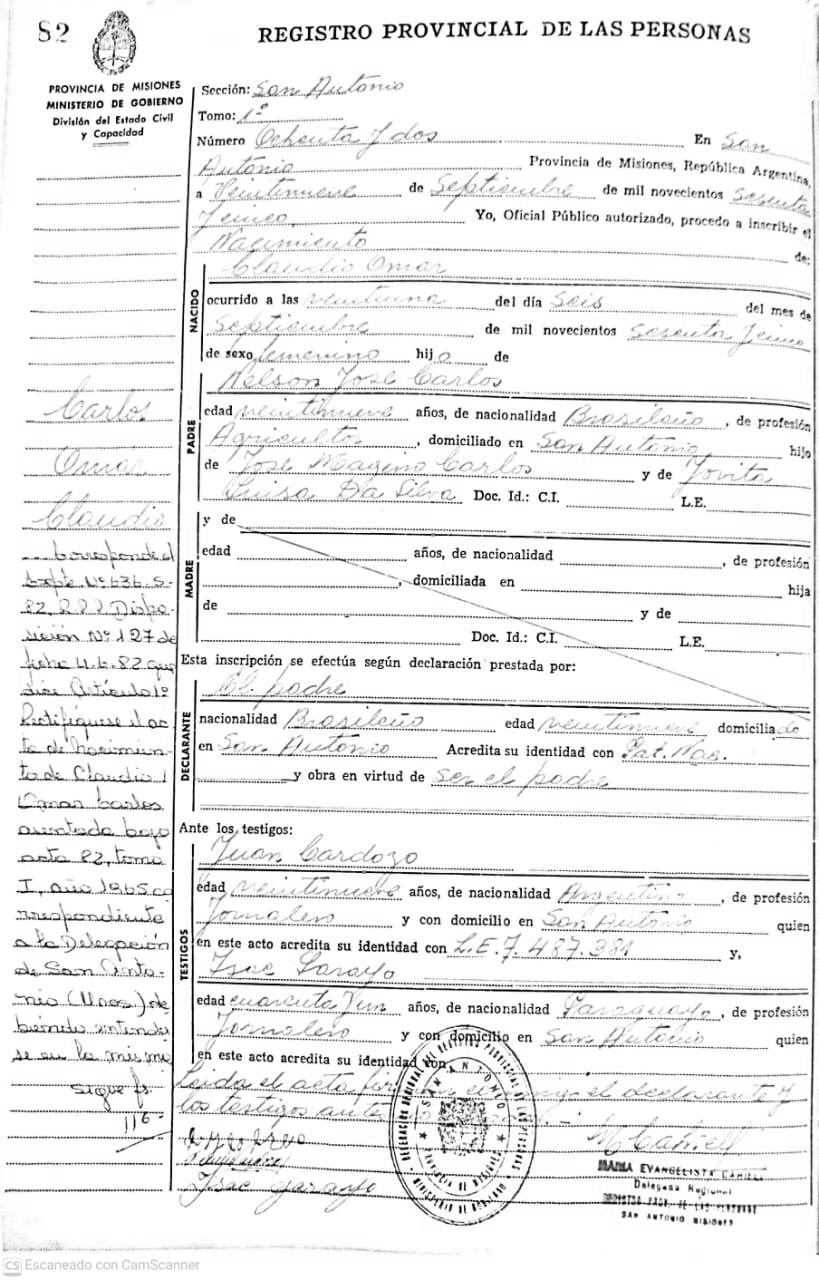 82
REGISTRO PROVINCIAL DE LAS PERSONAS
PROVINCIA DE MISIONES
MINISTERIO DE GOBIERNO
División del Estado Civil
y Capacidad
Sección: San Antonio
Tomo: 1º
Número Ochenta y dos En San
Antonio Provincia de Misiones, República Argentina,
a Veintinueve de Septiembre de mil novecientos Sesenta
y cinco. Yo, Oficial Público autorizado, procedo a inscribir el
Nacimiento de:
NACIDO
Claudio Omar
ocurrido a las veintiuna del día Seis del mes de
Septiembre de mil novecientos Sesenta y cinco
de sexo femenino hija de
PADRE
Nelson José Carlos
edad veintinueve años, de nacionalidad Brasileño, de profesión
Agricultor, domiciliado en San Antonio, hijo
de José Carlos y de Jovita
Da Silva Doc. Id.: C.I. L.E.
MADRE
y de
edad años, de nacionalidad , de profesión
, domiciliada en hija
de y de
Doc. Id.: C.I. L.E.
Esta inscripción se efectúa según declaración prestada por:
DECLARANTE
El padre
nacionalidad Brasileño edad veintinueve domiciliado
en San Antonio Acredita su identidad con
y obra en virtud de Ser el padre
Ante los testigos:
TESTIGOS
Juan Cardozo
edad veintinueve años, de nacionalidad Argentino, de profesión
Jornalero y con domicilio en San Antonio quien
en este acto acredita su identidad con L.E. 7.487.381 y,
Isac Garayo
edad cuarenta y un años, de nacionalidad Paraguayo, de profesión
Jornalero y con domicilio en San Antonio quien
en este acto acredita su identidad con
Leida el acta conmigo el declarante y
los testigos
Isac Garayo
SAN ANTONIO
MARIA EVANGELISTA CAHIELI
Delegada Regional
SAN ANTONIO MISIONES
Carlos
Omar
Claudio
Corresponde al
Expte Nº 636-S-
82, Dispo-
sición Nº 127 de
fecha 4.6.82 que
dice Artículo 1º
Rectifíquese el ac
ta de Nacimien-
to de Claudio
Omar Carlos
asentada bajo
acta 82, tomo
I, año 1965 co
rrespondiente
a la Delegación
de San Anto-
nio (Mnes) de-
biendo entender
se en la misma
sigue fs.
116
CS Escaneado con CamScanner